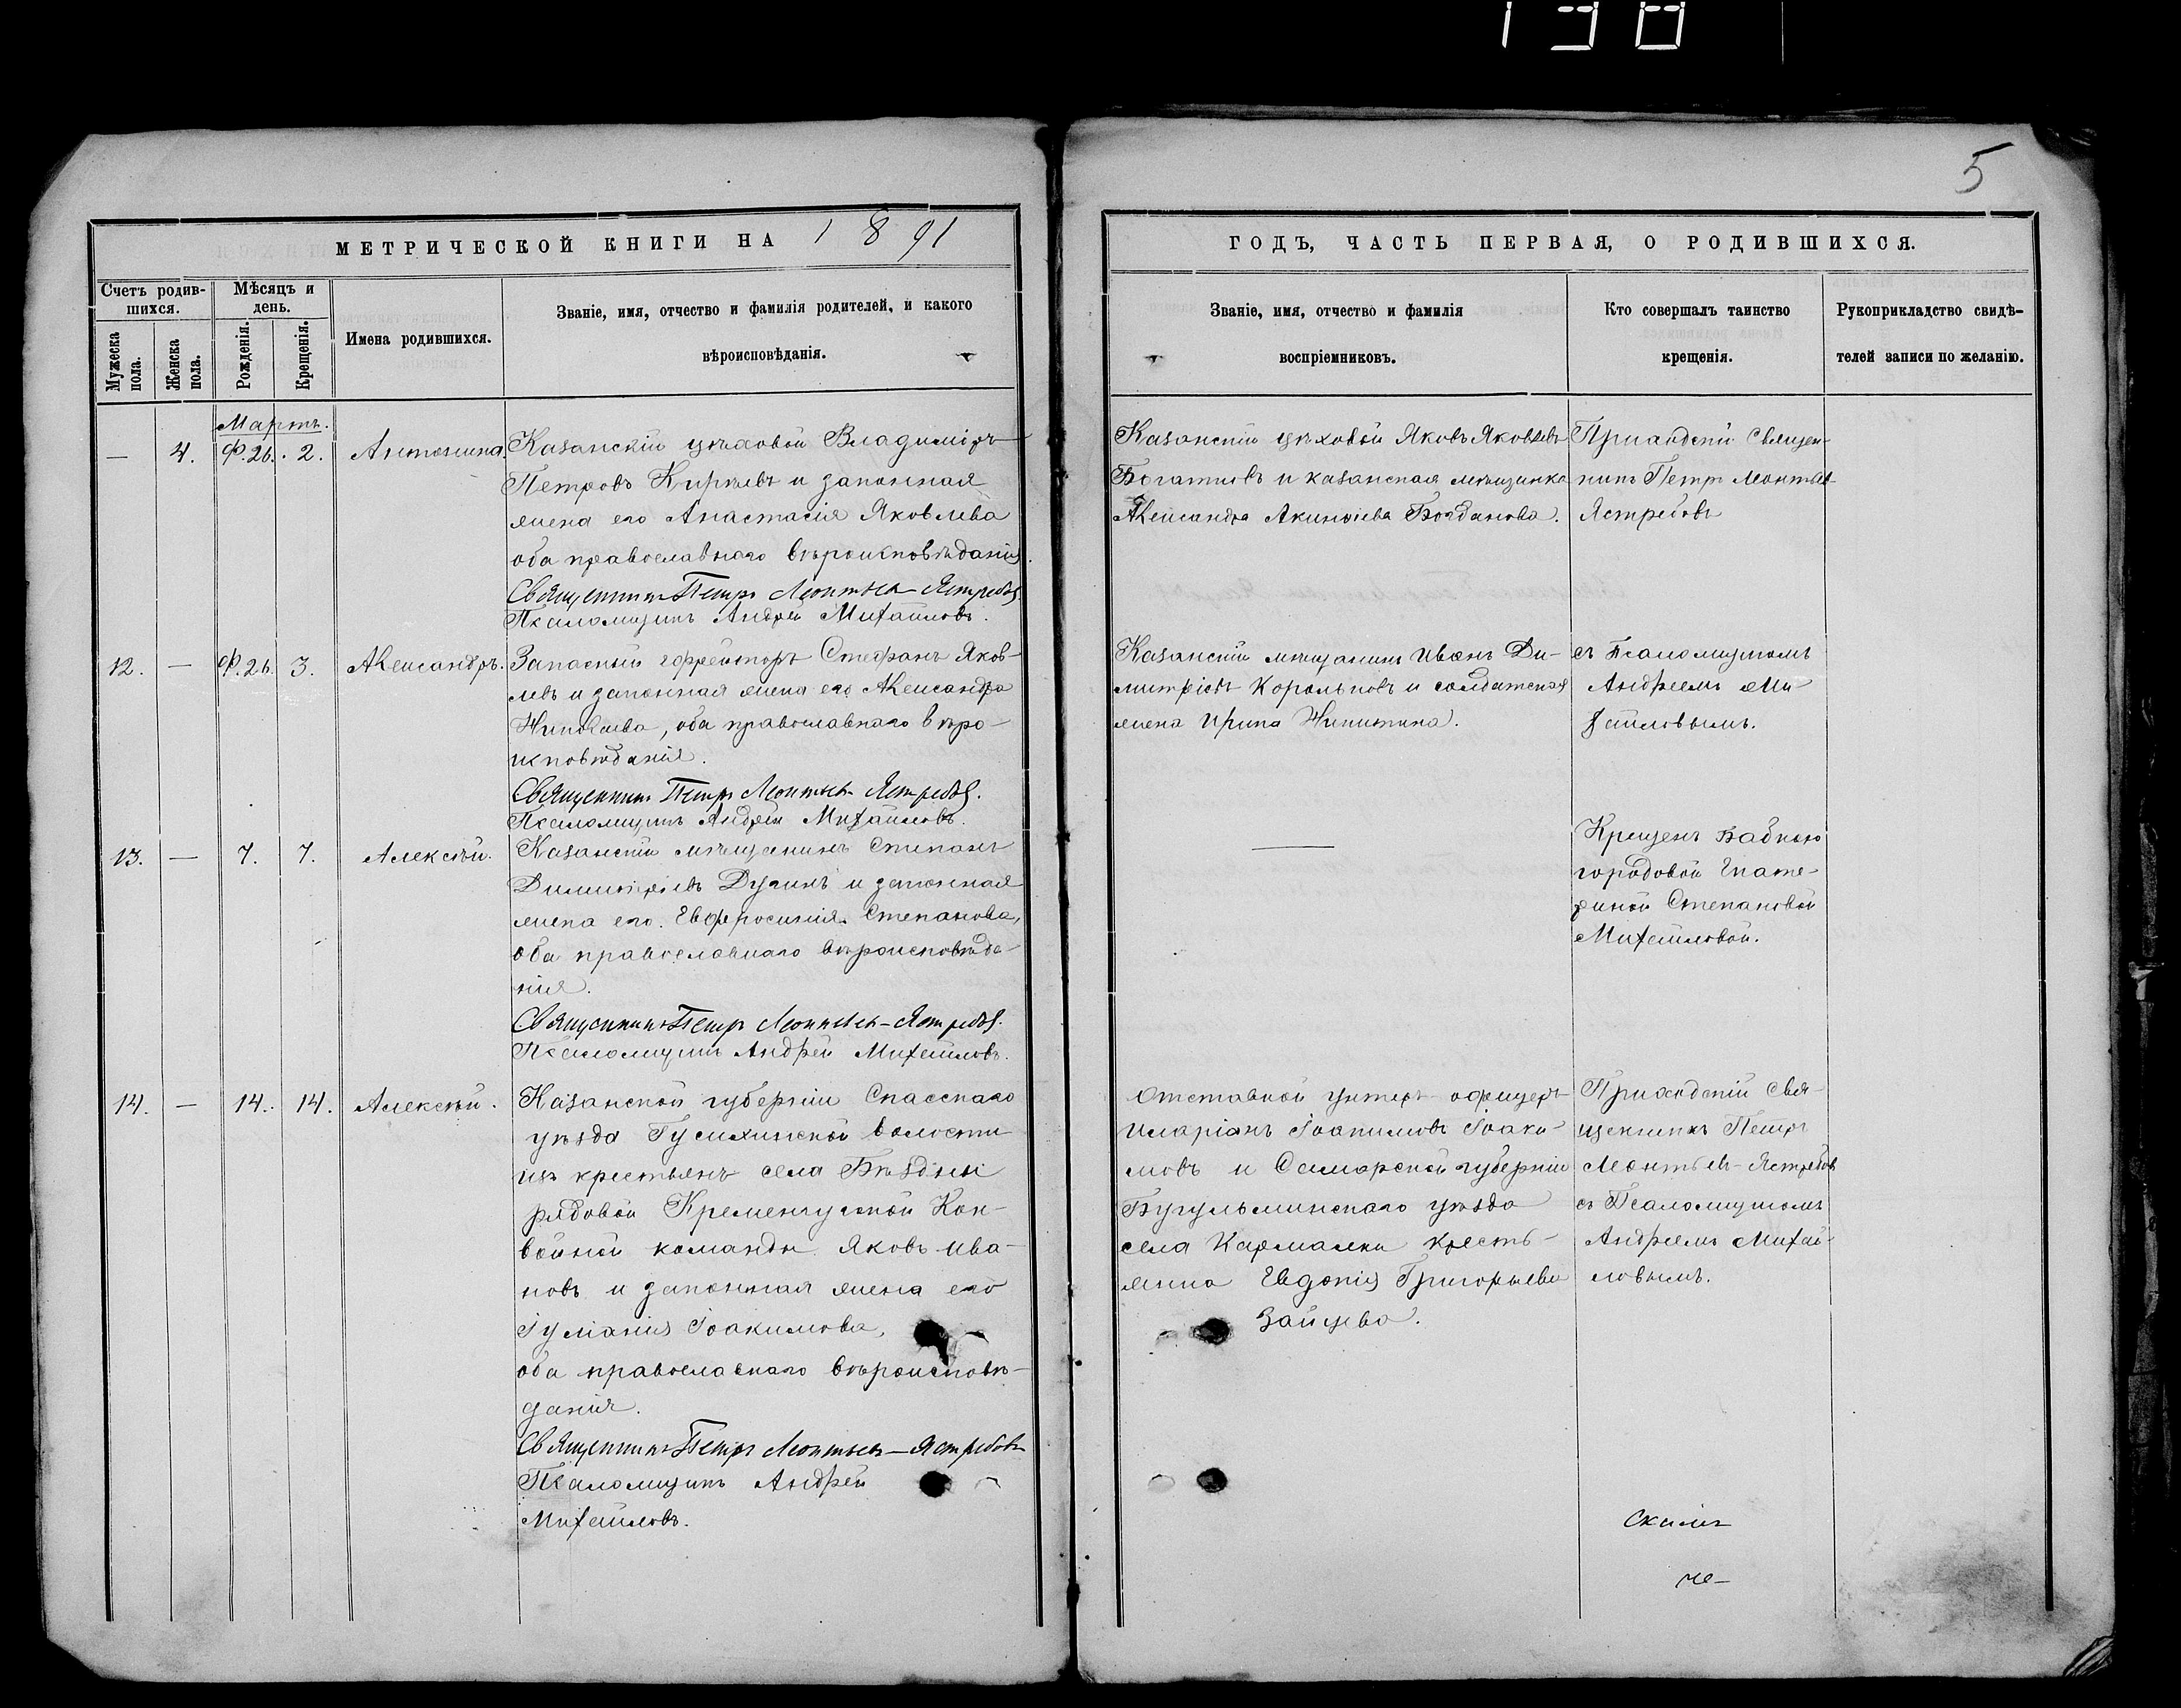 138
5
МЕТРИЧЕСКОЙ КНИГИ НА 1891
ГОДЪ, ЧАСТЬ ПЕРВАЯ, О РОДИВШИХСЯ.
Счетъ родив-
шихся.
Мужеска
пола.
Женска
пола.
Мѣсяцъ и
день.
Рожденія.
Крещенія.
Имена родившихся.
Званіе, имя, отчество и фамилія родителей, и какого
вѣроисповѣданія.
Званіе, имя, отчество и фамилія
воспріемниковъ.
Кто совершалъ таинство
крещенія.
Рукоприкладство свидѣ-
телей записи по желанію.
Мартъ.
— 4. Ф.26. 2. Антонина.
Казанскій цѣховой Владиміръ
Петровъ и законная
жена его Анастасія Яковлева
оба православнаго вѣроисповѣданія.
Священникъ Петръ Леонтьев-Ястребовъ.
Псаломщикъ Андрей Михайловъ.
Казанскій цѣховой Яковъ Яковлевъ
и казанская мѣщанка
Александра Акинфіева Богданова.
Приходскій священ-
никъ Петръ Леонтьев-
Ястребовъ
12. — Ф.26. 3. Александръ.
Запасный ефрейторъ Стефанъ Яков-
левъ и законная жена его Александра
Николаева, оба православнаго вѣро-
исповѣданія.
Священникъ Петръ Леонтьев-Ястребовъ.
Псаломщикъ Андрей Михайловъ.
Казанскій мѣщанинъ Иванъ Ди-
митріевъ Корольковъ и солдатская
жена Ирина Никитина.
съ Псаломщикомъ
Андреемъ Ми-
хайловымъ.
13. — 7. 7. Алексѣй.
Казанскій мѣщанинъ Степанъ
Димитріевъ и законная
жена его Евфросинія Степанова,
оба православнаго вѣроисповѣда-
нія.
Священникъ Петръ Леонтьев-Ястребовъ.
Псаломщикъ Андрей Михайловъ.
—
Крещенъ бабкою
городовой Екате-
риной Степановой
Михайловой.
14. — 14. 14. Алексѣй.
Казанской губерніи Спасскаго
уѣзда Гусихинской волости
изъ крестьянъ села Бѣздны
рядовой Кременчугской Кон-
войной команды Яковъ Ива-
новъ и законная жена его
Іуліанія Іоакимова,
оба православнаго вѣроисповѣ-
данія.
Священникъ Петръ Леонтьевъ-Ястребовъ
Псаломщикъ Андрей
Михайловъ.
Отставной унтеръ-офицеръ
Иларіонъ Іоакимовъ Іоаки-
мовъ и Самарской губерніи
Бугульминскаго уѣзда
села Кармалки кресть-
янка Евдокія Григорьева
Зайцева.
Приходскій свя-
щенникъ Петръ
Леонтьев-Ястребовъ
съ Псаломщикомъ
Андреемъ Михай-
ловымъ.